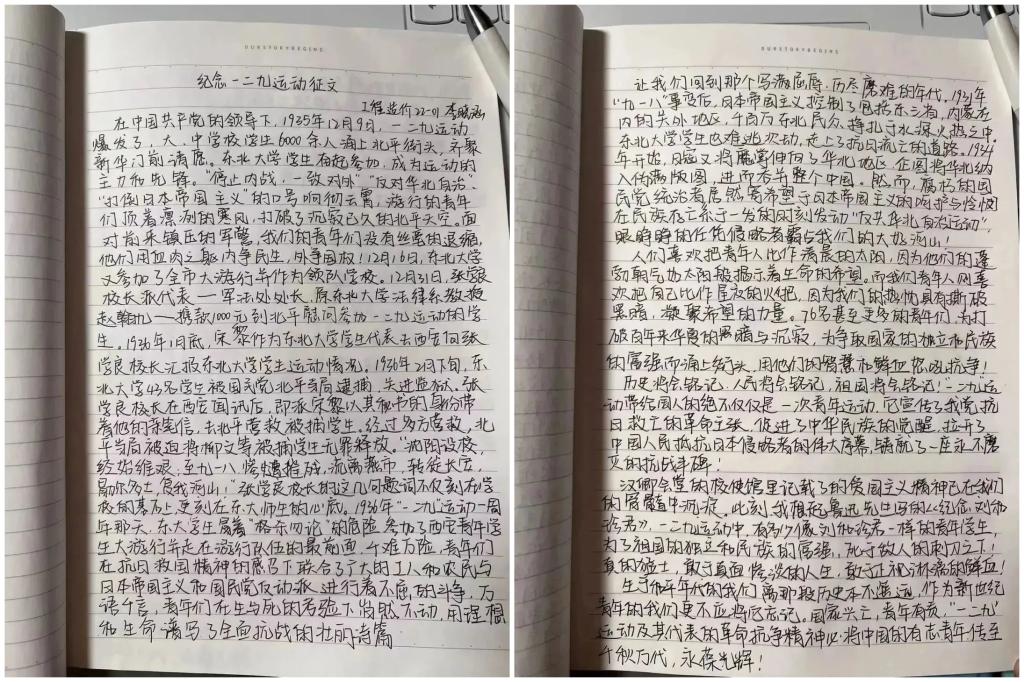 OURSTORYBEGINS
纪念一二九运动征文
工程造价22-01 李晓涵
在中国共产党的领导下,1935年12月9日,一二九运动
爆发了,大、中学校学生6000余人涌上北平街头,齐聚
新华门前请愿。东北大学学生奋起参加,成为运动的
主力和先锋。“停止内战,一致对外”“反对华北自治”
“打倒日本帝国主义”的口号响彻云霄,游行的青年
们顶着凛冽的寒风,打破了沉寂已久的北平天空。面
对前来镇压的军警,我们的青年们没有丝毫的退缩,
他们用血肉之躯内争民主,外争国权!12月16日,东北大学
又参加了全市大游行并作为领队学校。12月31日,张学良
校长派代表——军法处处长、原东北大学法律系教授
赵翰九——携款1000元到北平慰问参加一二九运动的学
生。1936年1月底,宋黎作为东北大学学生代表去西安向张
学良校长汇报东北大学学生运动情况。1936年2月下旬,东
北大学43名学生被国民党北平当局逮捕,关进监狱。张
学良校长在西安闻讯后,即派宋黎以其秘书的身份带
着他的亲笔信,去北平营救被捕学生。经过多方营救,北
平当局被迫将柳文等被捕学生无罪释放。“沈阳设校,
经始维艰,至九一八,惨遭摧残,流离燕市,转徙长安,
勖尔多士,复我河山!”张学良校长的这几句题词不仅刻在学
校的基石上更刻在东大师生的心底。1936年“一二九”运动一周
年那天,东大学生冒着“格杀勿论”的危险,参加了西安青年学
生大游行并走在游行队伍的最前面,千难万险,青年们
在抗日救国精神的感召下联合了广大的工人和农民与
日本帝国主义和国民党反动派进行着不屈的斗争,万
语千言,青年们在生与死的考验下岿然不动,用理想
和生命谱写了全面抗战的壮丽诗篇
OURSTORYBEGINS
让我们回到那个写满屈辱、历尽磨难的年代。1931年
“九一八”事变后,日本帝国主义控制了包括东三省,内蒙在
内的关外地区,千百万东北民众,挣扎于水深火热之中。
东北大学学生也难逃劫动,走上了抗日流亡的道路。1934
年开始,日寇又将魔掌伸向了华北地区,企图将华北纳
入伪满版图,进而吞并整个中国。然而,腐朽的国
民党统治者居然寄希望于日本帝国主义的呵护与怜悯
在民族存亡系于一发的时刻发动“反共华北自治运动”,
眼睁睁的任凭侵略者霸占我们的大好河山!
人们喜欢把青年人比作清晨的太阳,因为他们的蓬
勃朝气如太阳般揭示着生命的希望。而我们青年人则喜
欢把自己比作星夜的火把,因为我们的热忱具有撕破
黑暗,凝聚希望的力量。76名甚至更多的青年们,为打
破百年来华夏的黑暗与沉寂,为争取国家的独立和民族
的富强而涌上街头,用他们的智慧和鲜血怒吼抗争!
历史将会铭记,人民将会铭记,祖国将会铭记!“一二九运
动带给国人的绝不仅仅是一次青年运动,它宣传了我党抗
日救亡的革命主张,促进了中华民族的觉醒,拉开了
中国人民抵抗日本侵略者的伟大序幕,铸就了一座永不磨
灭的抗战丰碑!
汉卿会堂的校史馆里记载了的爱国主义精神已在我们
的骨髓中沉淀。此刻,我想起鲁迅先生写的《纪念,刘和
珍君》,一二九运动中,有多少像刘和珍君一样的青年学生,
为了祖国的独立和民族的富强,死于敌人的刺刀之下!
真的猛士,敢于直面惨淡的人生,敢于正视淋漓的鲜血!
生于和平年代的我们离那段历史本不遥远,作为新世纪
青年的我们更不应将它忘记。国家兴亡,青年有责,“一二九”
运动及其代表的革命抗争精神必将中国的有志青年传至
千秋万代,永葆光辉!